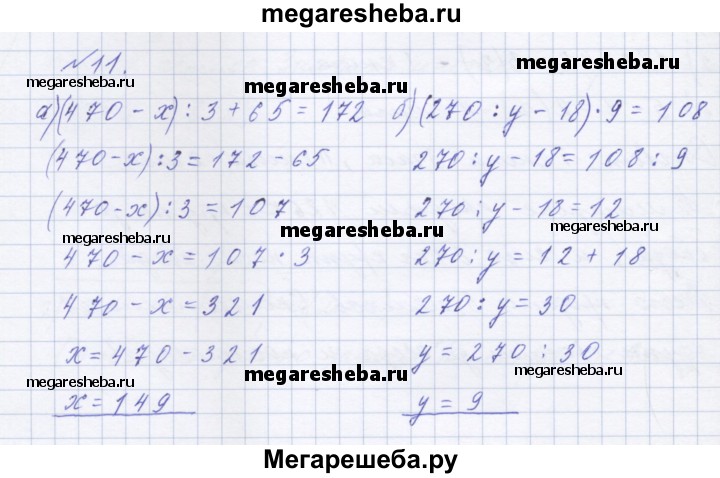 megaresheba.ru
№11.
megaresheba.ru megaresheba.ru megaresheba.ru
а) (470 - x) : 3 + 65 = 172 б) (270 : y - 18) · 9 = 108
(470 - x) : 3 = 172 - 65 270 : y - 18 = 108 : 9
(470 - x) : 3 = 107 270 : y - 18 = 12
megaresheba.ru megaresheba.ru megaresheba.ru
470 - x = 107 · 3 270 : y = 12 + 18
470 - x = 321 270 : y = 30
x = 470 - 321 y = 270 : 30
megaresheba.ru megaresheba.ru megaresheba.ru
x = 149 y = 9
Мегарешеба.ру